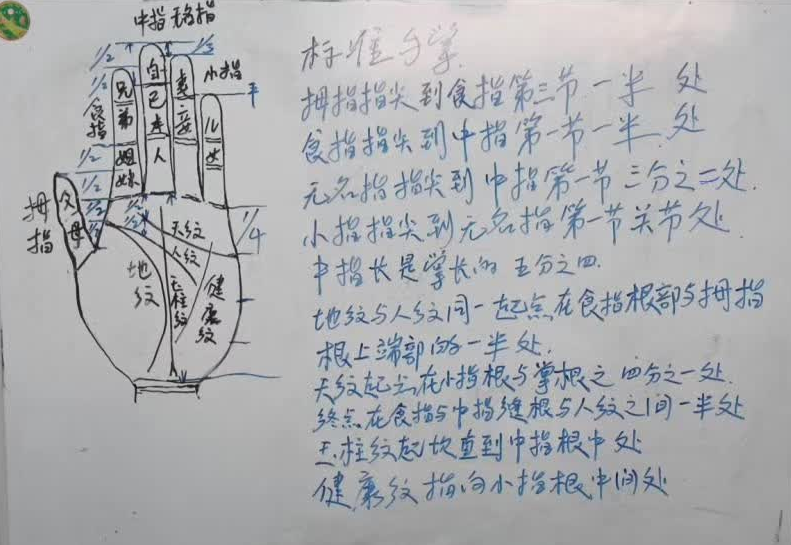 中指 无名指
1/2
1/3
小指
1/2
食指
兄弟
姐妹
自己本人
妻妾
儿女
平
1/2
1/2
1/2
1/2
1/2
拇指
父母
天纹
人纹
地纹
玉柱纹
健康纹
1/4
标准手掌
拇指指尖到食指第三节一半处
食指指尖到中指第一节一半处
无名指指尖到中指第一节三分之二处.
小指指尖到无名指第一节关节处.
中指长是掌长的五分之四.
地纹与人纹同一起点在食指根部与拇指
根上端部的一半处.
天纹起点在小指根与掌根之四分之一处.
终点在食指与中指缝根与人纹之间一半处
玉柱纹起坎直到中指根中处
健康纹指向小指根中间处